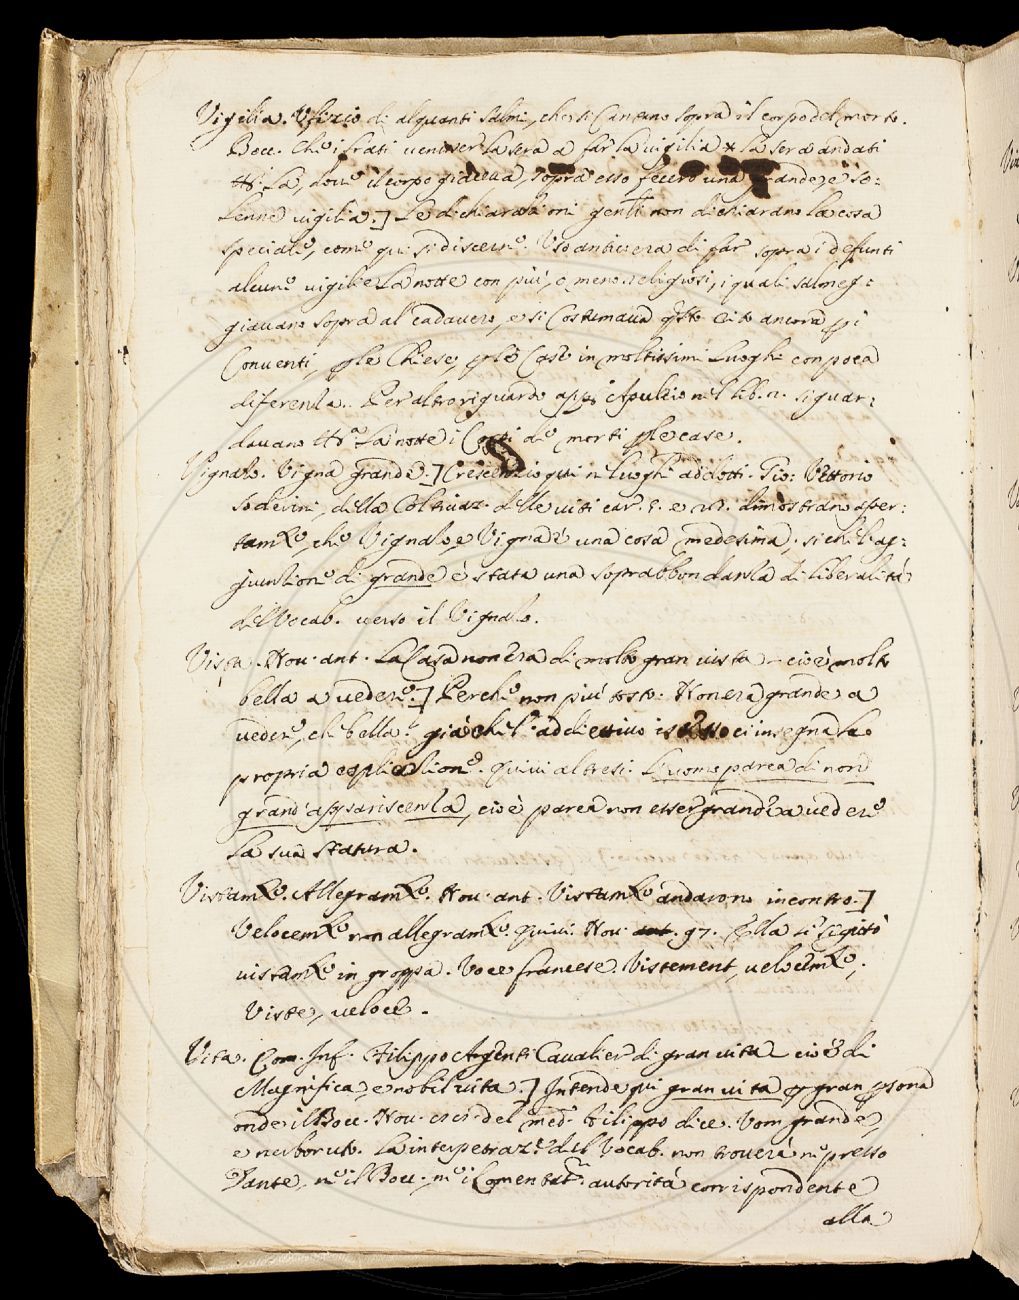 Vigilia. Ufizio di alquanti Salmi, che si Cantano sopra il corpo del morto.
Bocc. Che i frati venisser la sera a far la vigilia la sera andati
la, dove il corpo giaceva, sopra esso fecero una grande, e so:
lenne vigilia.] Le dichiarazioni genli non dichiarano la cosa
speciale, come qui si discerne. Uso antico era di far sopra i defunti
alcune vigilie la notte con più, o meno religiosi, i quali salmeg:
giavano sopra al cadavero, e si costumava qsto rito ancora pi
Conventi, ple Chiese, ple Case in moltissimi Luoghi con poca
diferenza. Per altro riguardo appo Apuleio nel lib. 2. si guar:
davano la notte i Corpi de' morti ple case.
Vignalo. Vigna grande.] Crescenzio qui ne luoghi addotti. Gio: Vettorio
Soderini, della Coltivaz. delle viti car. dimostrano aper:
tamte, che Vignalo, e Vigna è una cosa medesima, si che l'ag:
giunzione di grande è stata una soprabbondanza di liberalità
del Vocab. verso il Vignalo.
Vista. Nov. ant. La Casa non era di molto gran vista – cioè molto
bella a vedere.] Perche non più tosto: Non era grande a
vedere, che bella? già che l'addiettivo istesso ci insegna la
propria esplicazione. quivi altresi. L'uomo parea di non
grand'appariscenza, cioè parea non esser grande a vedere
la sua statura.
Vistamte. Allegramte. Nov. ant. Vistamte andarono incontro.]
Velocemte non allegramte. quivi. Nov. ant. 97. Ella si li gittò
vistamte in groppa. Voce francese. Vistement, velocemte,
Viste, veloce.
Vita. Com. Inf. Filippo Argenti Cavalier di gran vita – cioè di
Magnifica, e nobil vita.] Intende qui gran vita p gran psona
onde il Bocc. Nov. del med. Filippo dice. Uom grande,
e nerboruto. La interpetraz. del Vocab. non troverà ne presso
Dante, ne il Bocc., ne i Comentatri autorità corrispondente
alla